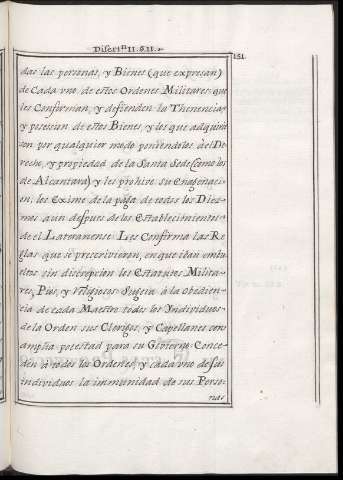 Disert.ⁿ II. §. II. 
151.
das las personas, y Bienes (que expresan)
de Cada vno de estos Ordenes Militares que
les Confirman, y defienden la Thenencia,
y posesion de estos Bienes, y los que adquirie-
sen por qualquier modo poniendolos à el De-
recho, y propiedad de la Santa Sede (como los
de Alcantara) y les prohive su Enagenaci-
on; los Exime de la paga de todos los Diez-
mos aun despues de los Establecimientos
de el Lateranense. Les Confirma las Re-
glas que se prescrivieron, en que iban embu-
eltos sin discrepcion los Estatutos Milita-
res, Pios, y Religiosos. Sugeta à la obedien-
cia de cada Maestro todos los Individuos
de la Orden sus Clerigos, y Capellanes con
amplia potestad para su Govierno. Conce-
den à todos los Ordenes, y cada vno de sus
individuos la immunidad de sus Perso-
nas